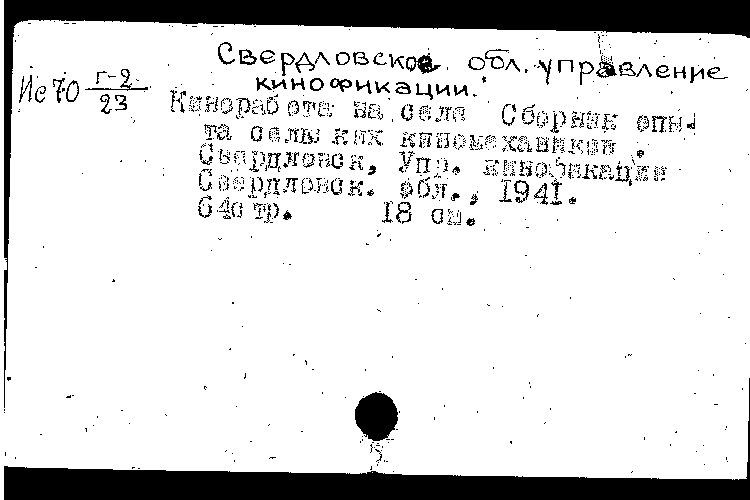 Свердловское обл. управление
кинофикации.
Ис70 Г-2
23
Киноработа на селе Сборник опы-
та сельских киномехаников.
Свердловск, Упр. кинофикации
Свердловск. обл., 1941.
64стр. 18 см.